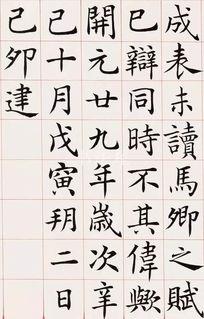 成表未讀馬卿之賦
巳辯同時不其偉歟
開元廿九年歲次辛
巳十月戊寅玥二日
己卯建